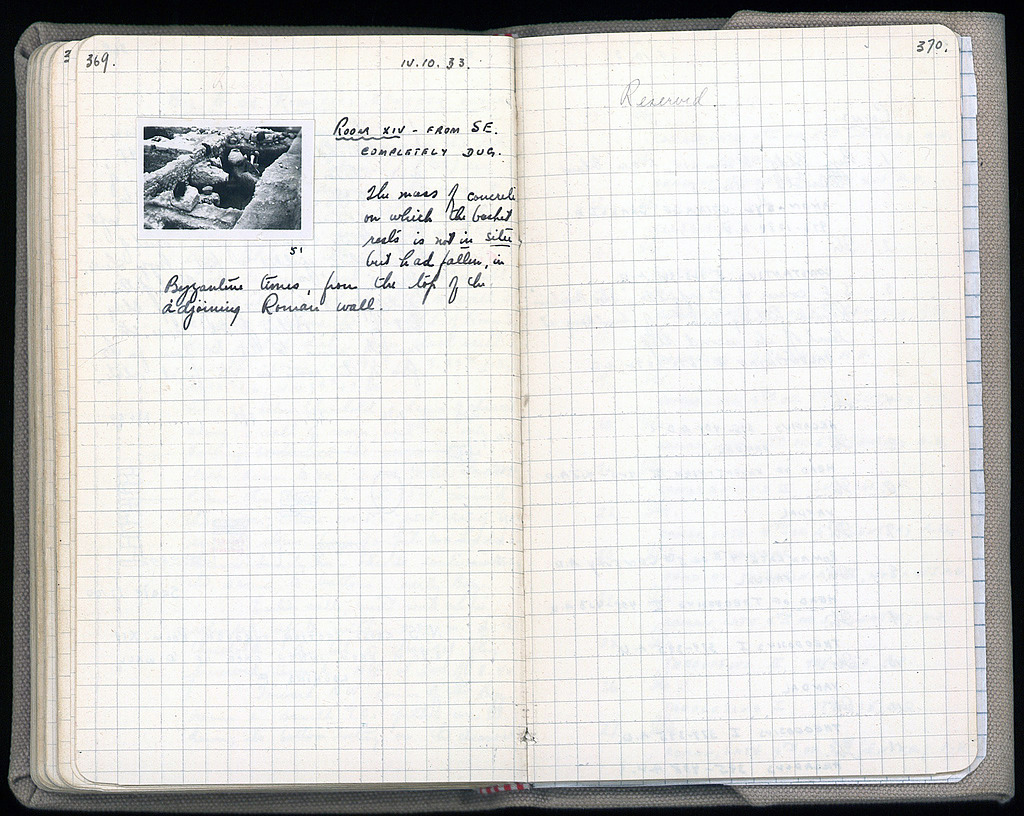 369.
IV.10.33.
ROOM XIV - FROM SE.
COMPLETELY DUG.
The mass of concrete
on which the basket
rests is not in situ,
but had fallen, in
51
Byzantine times, from the top of the
adjoining Roman wall.
370.
Reserved.